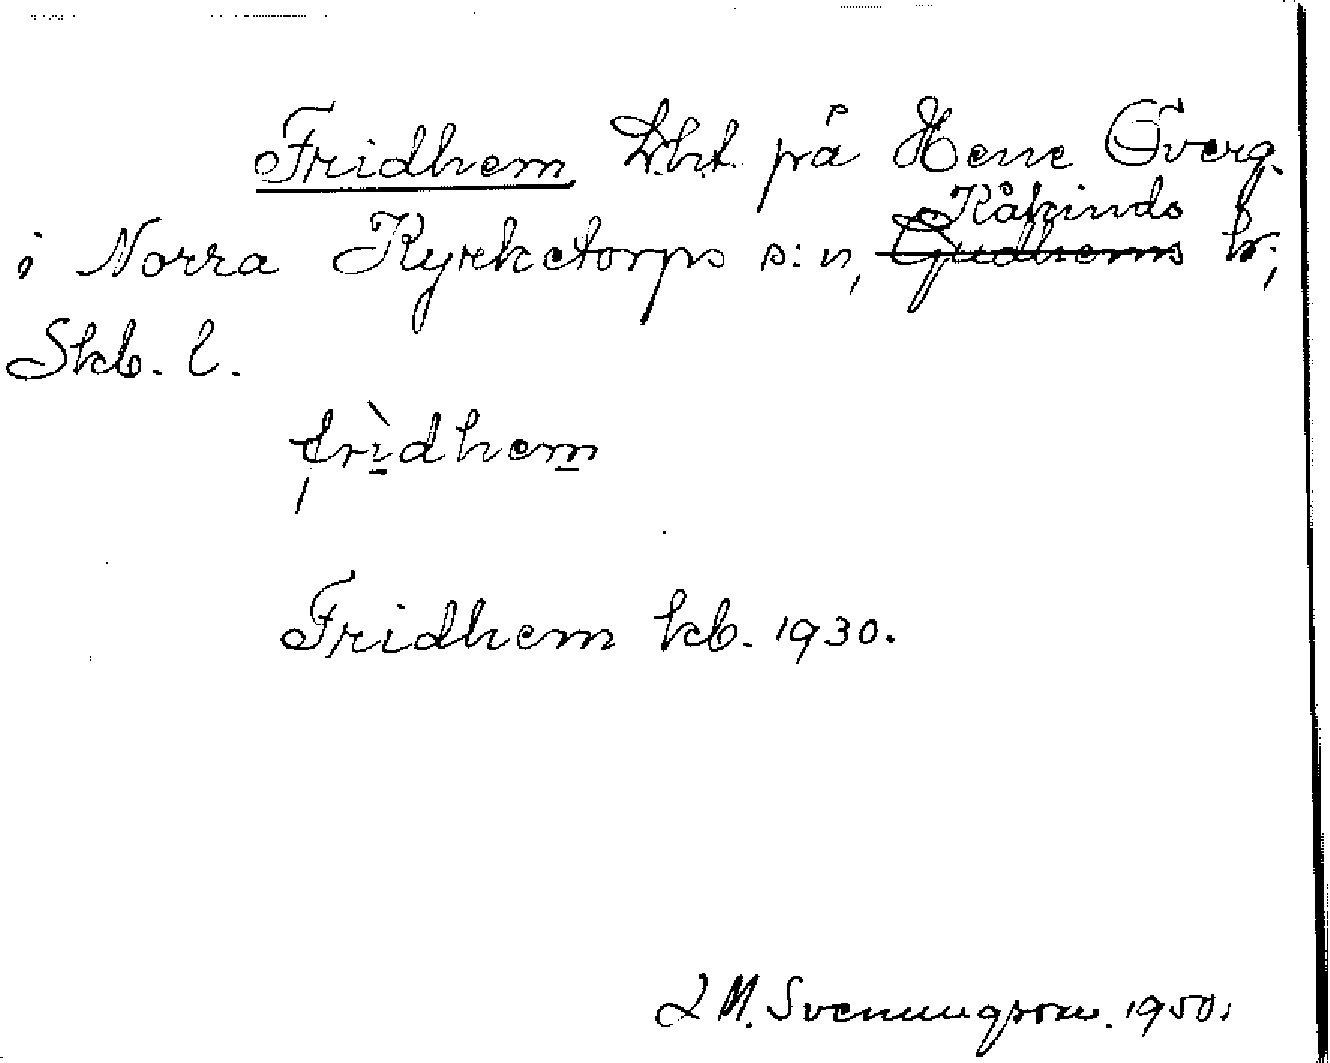 Fridhem Lht på Hene Överg.
i Norra Kyrketorps s:n, Gudhems Kåkinds hr;
Skb. l.
frìdhem
Fridhem kb. 1930.
L M. Svenungsson. 1950.